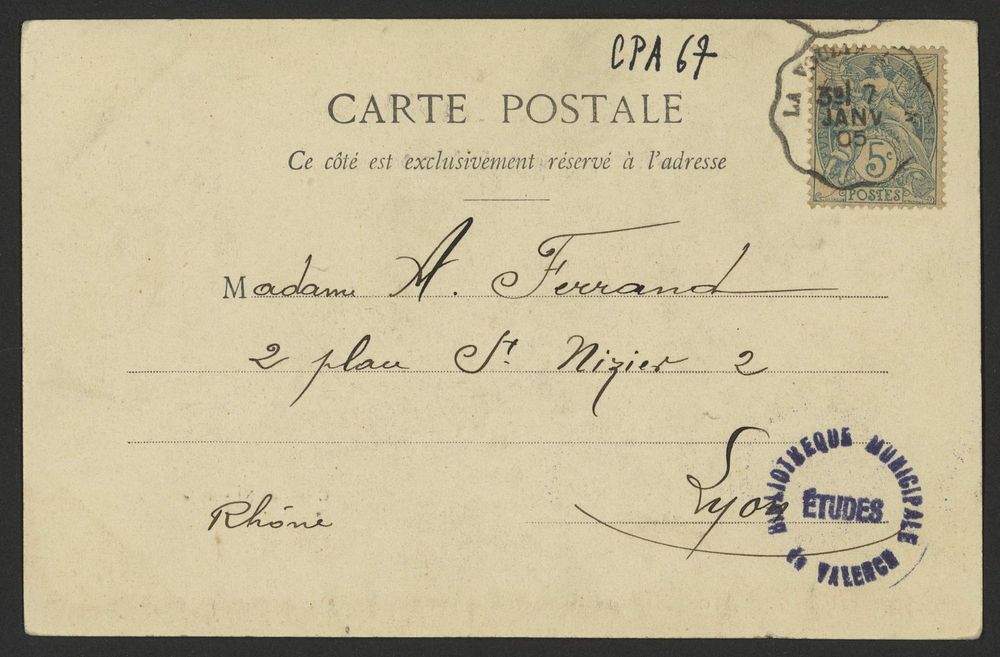 CPA 67
CARTE POSTALE
Ce côté est exclusivement réservé à l'adresse
LA
3e 7
JANV
05
5c
POSTES
Madame A. Ferrand
2 place St Nizier 2
Lyon
Rhône
BIBLIOTHEQUE MUNICIPALE
ÉTUDES
de VALENCE